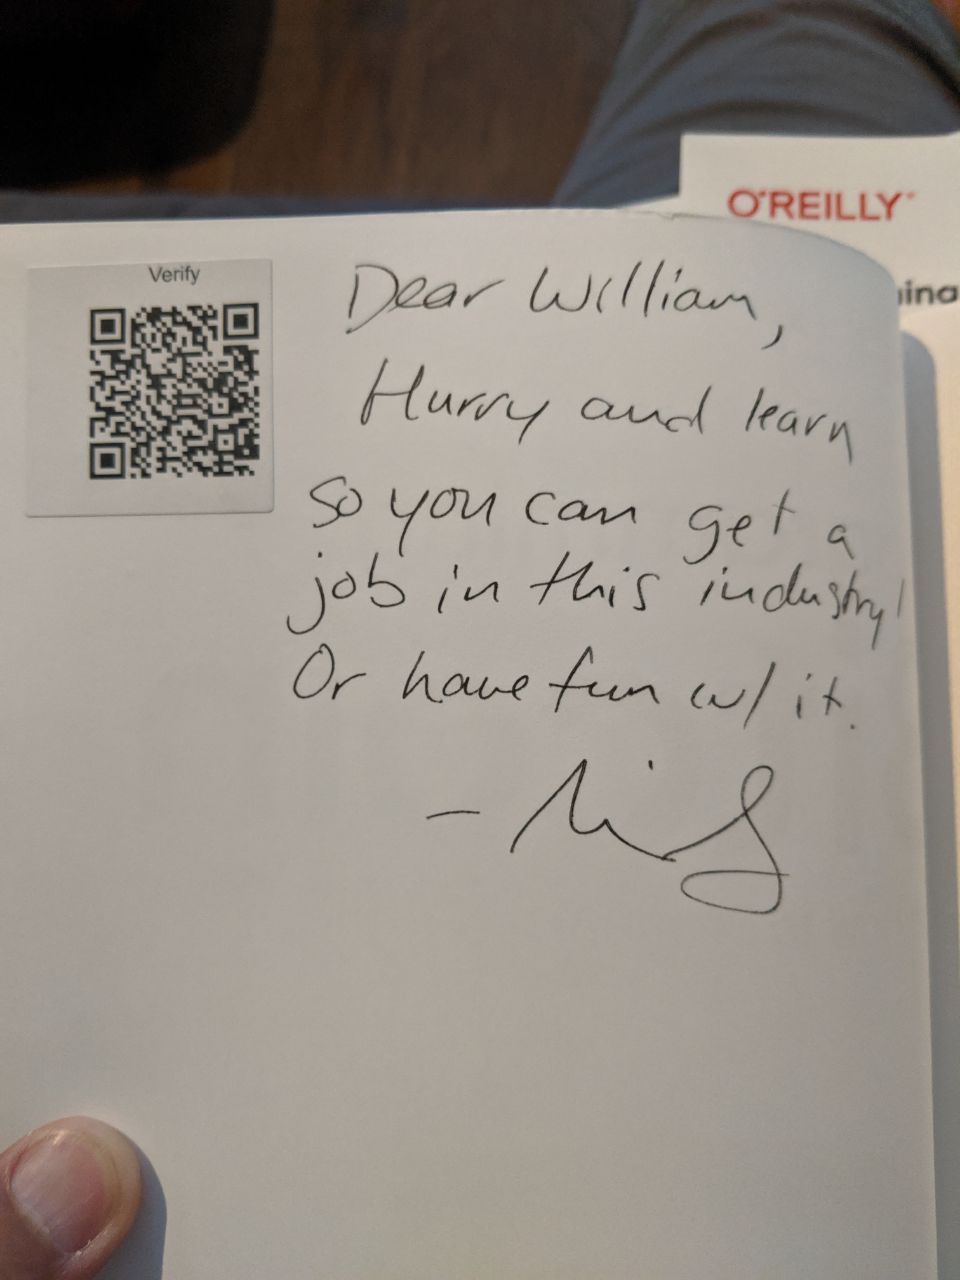 O'REILLY
Verify
Dear William,
Hurry and learn
so you can get a
job in this industry!
Or have fun w/ it.